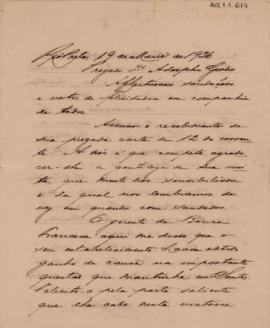 AG1.1.614
Rio Preto, 19 de Março de 1926
Prezado Sr. Adolpho
Affectuosas saudações
e votos de felicidades em companhia
de todos.
Accuso o recebimento de
sua prezada carta de 12 do corren-
te. A nós é que compete agrade-
cer-lhe a de sua visi-
ta que muito nos sensibilisou
e da qual nos lembramos de
vez em quando com saudades.
O gerente do Banco
Francese aqui me disse que o
seu estabelecimento havia obtido
ganho de causa na importante
questão que mantinha em Santos.
Felicito-o pela parte saliente
que lhe cabe nesta victoria